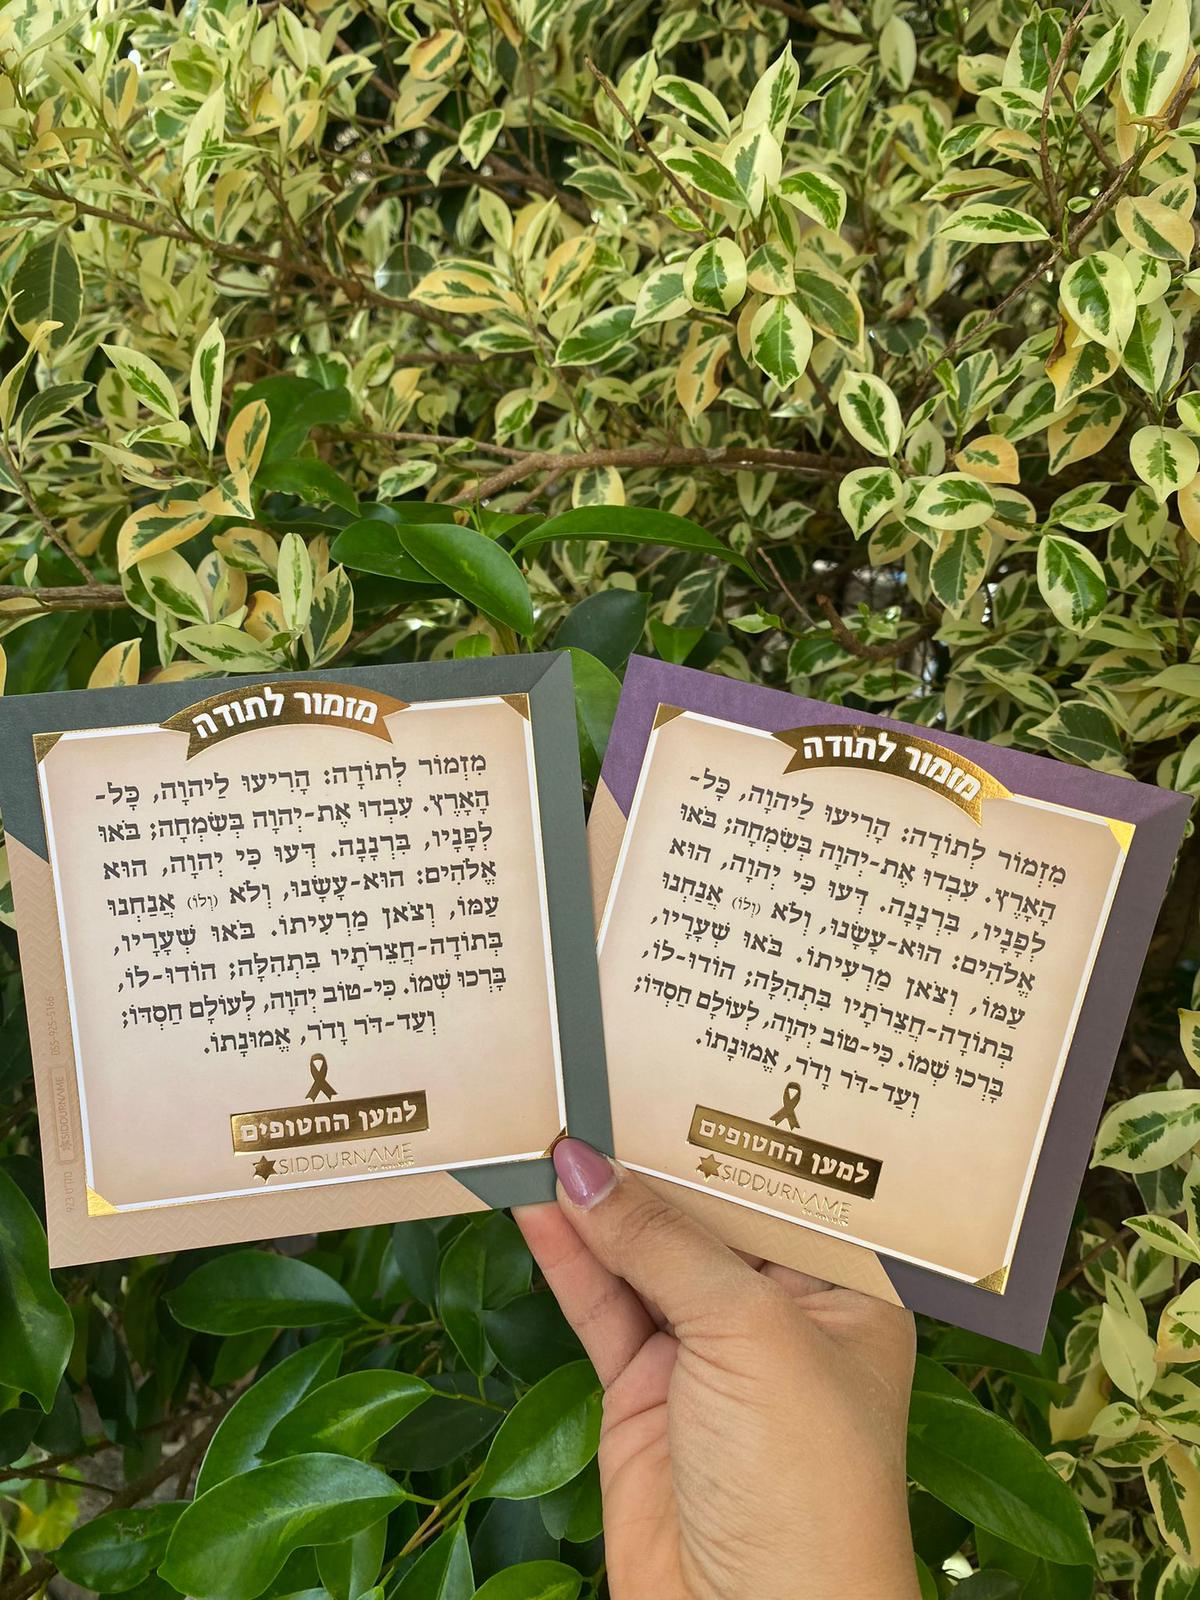 מזמור לתודה
מִזְמוֹר לְתוֹדָה: הָרִיעוּ לַיהוָה, כָּל-
הָאָרֶץ. עִבְדוּ אֶת-יְהוָה בְּשִׂמְחָה; בֹּאוּ
לְפָנָיו, בִּרְנָנָה. דְּעוּ כִּי יְהוָה, הוּא
אֱלֹהִים: הוּא-עָשָׂנוּ, וְלֹא (וְלוֹ) אֲנַחְנוּ
עַמּוֹ, וְצֹאן מַרְעִיתוֹ. בֹּאוּ שְׁעָרָיו,
בְּתוֹדָה-חֲצֵרֹתָיו בִּתְהִלָּה; הוֹדוּ-לוֹ,
בָּרְכוּ שְׁמוֹ. כִּי-טוֹב יְהוָה, לְעוֹלָם חַסְדּוֹ;
וְעַד-דֹּר וָדֹר, אֱמוּנָתוֹ.
למען החטופים
SIDDURNAME
מק"ט 923 SIDDURNAME 055-925-5166
מזמור לתודה
מִזְמוֹר לְתוֹדָה: הָרִיעוּ לַיהוָה, כָּל-
הָאָרֶץ. עִבְדוּ אֶת-יְהוָה בְּשִׂמְחָה; בֹּאוּ
לְפָנָיו, בִּרְנָנָה. דְּעוּ כִּי יְהוָה, הוּא
אֱלֹהִים: הוּא-עָשָׂנוּ, וְלֹא (וְלוֹ) אֲנַחְנוּ
עַמּוֹ, וְצֹאן מַרְעִיתוֹ. בֹּאוּ שְׁעָרָיו,
בְּתוֹדָה-חֲצֵרֹתָיו בִּתְהִלָּה; הוֹדוּ-לוֹ,
בָּרְכוּ שְׁמוֹ. כִּי-טוֹב יְהוָה, לְעוֹלָם חַסְדּוֹ;
וְעַד-דֹּר וָדֹר, אֱמוּנָתוֹ.
למען החטופים
SIDDURNAME